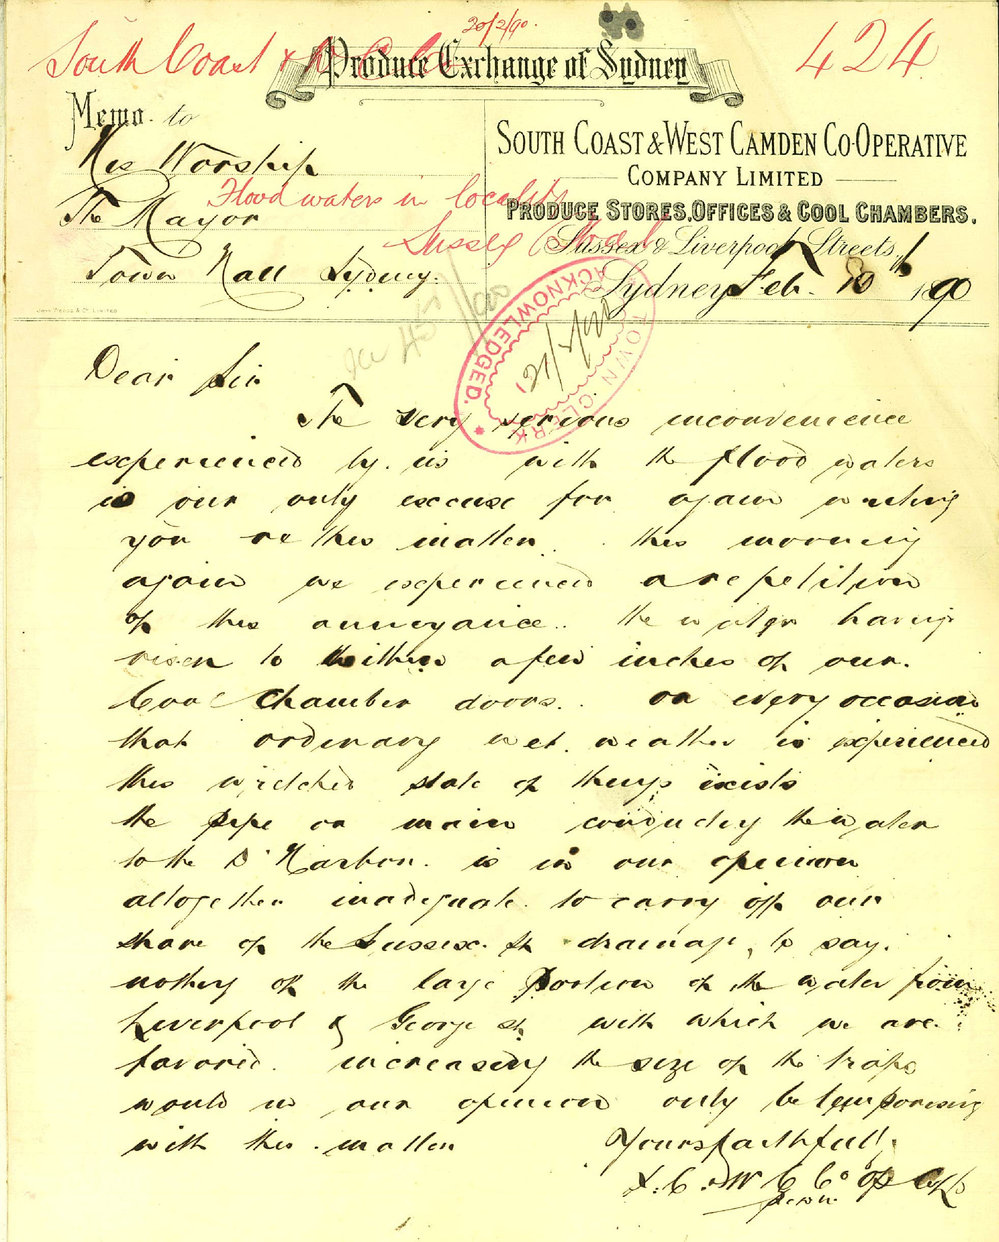 20/2/90.
South Coast & W C Co
424
Produce Exchange of Sydney
Memo. to
His Worship
The Mayor
Town Hall Sydney.
Flood waters in locality
Sussex Street
SOUTH COAST & WEST CAMDEN CO-OPERATIVE
COMPANY LIMITED
PRODUCE STORES, OFFICES & COOL CHAMBERS.
Sussex & Liverpool Streets,
Sydney Feb. 20 1890
TOWN CLERK
ACKNOWLEDGED.
21/2/90
Dear Sir
The very serious inconvenience
experienced by us with the flood waters
is our only excuse for again writing
you re this matter. this morning
again we experienced a repetition
of this annoyance.. the water having
risen to within a few inches of our.
Cool Chamber doors.. on every occasion
that ordinary wet weather is experienced
this wretched state of things exists
the pipe or main conducting the water
to the D. Harbor. is in our opinion
altogether inadequate to carry off our
share of the Sussex. St drainage, to say.
nothing of the large portion of the water from
Liverpool & George St with which we are.
favored. increasing the size of the traps
would in our opinion only be temporising
with this matter
Yours faithfully
S. C. & W C Co op Co Ld